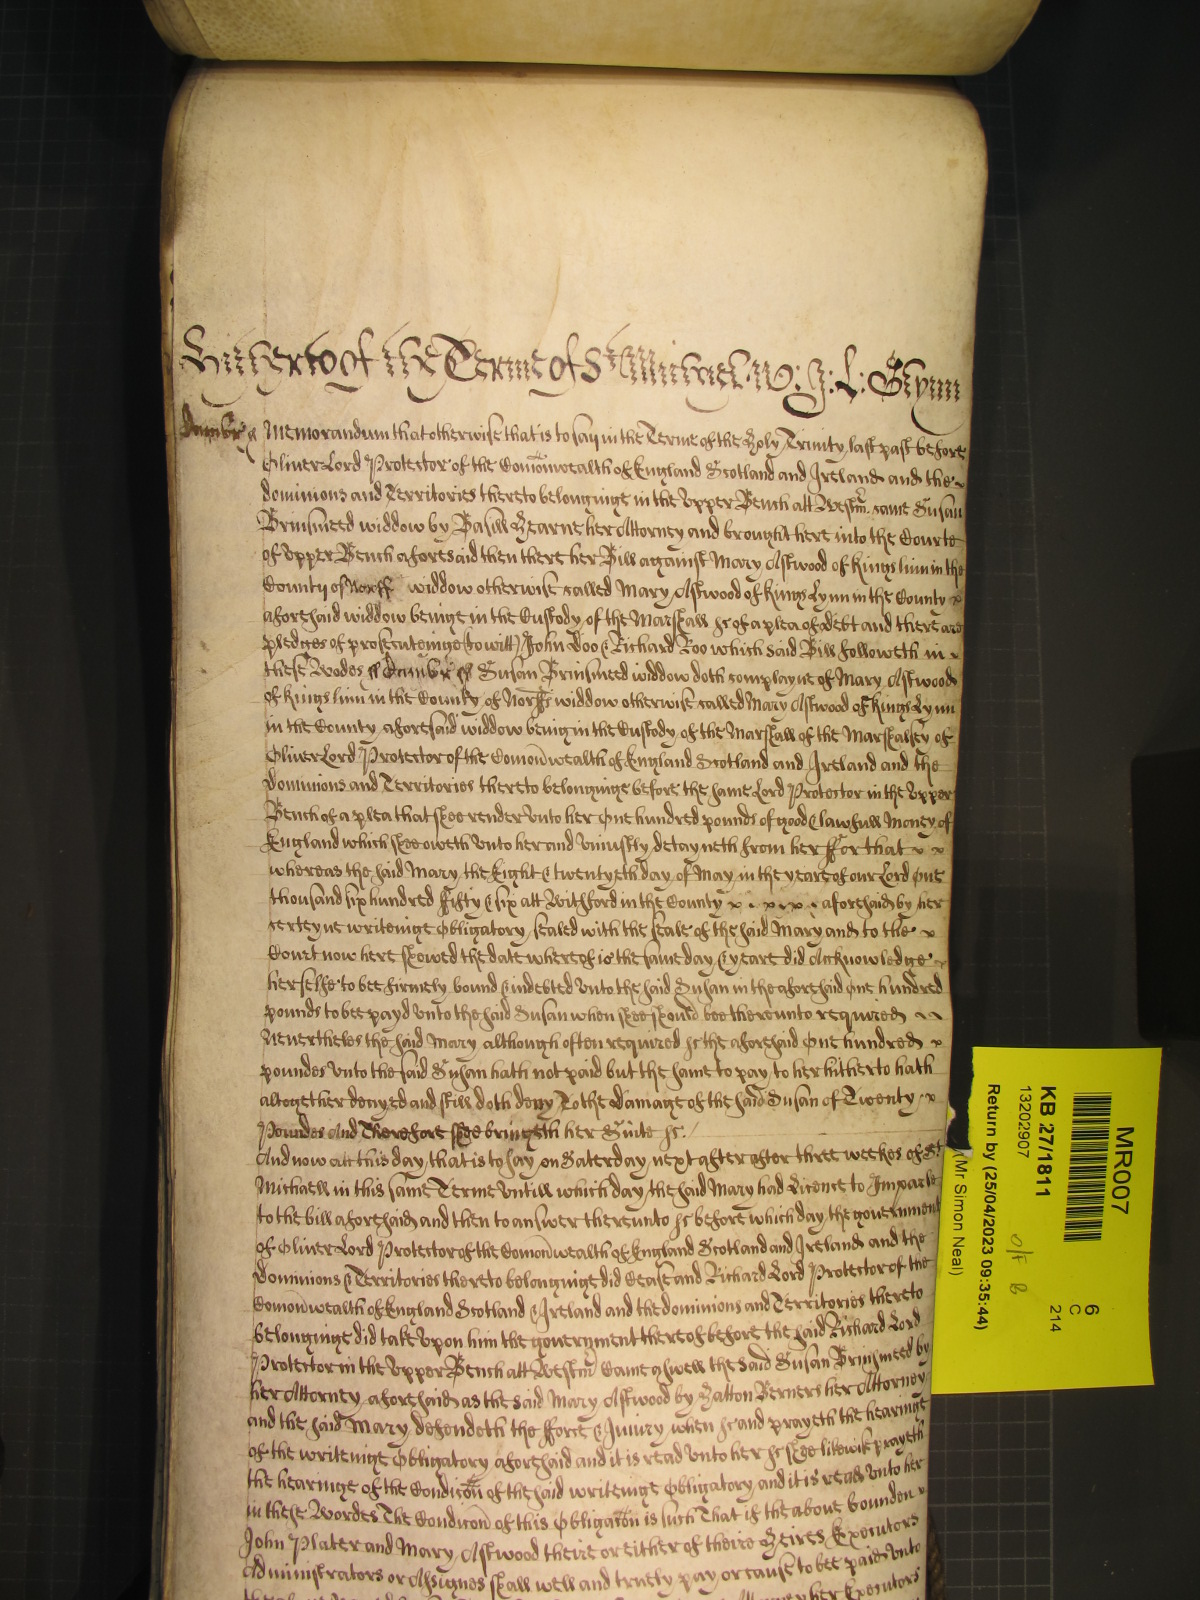 Hitherto of the Terme of St Michael. W: J: L: Glynn
Cambr ss Memorandum that otherwise that is to say in the Terme of the Holy Trinity last past before
Oliver Lord Protector of the Comonwealth of England Scotland and Ireland and the
dominions and Territories thereto belonginge in the Upper Bench att Westmr. came Susan
Brinsmeed widdow by Basill Hearne her Attorney and brought here into the Courte
of Upper Bench aforesaid then there her Bill against Mary Astwood of Kings linn in the
County of Norff widdow otherwise called Mary Astwood of Kings Lynn in the County
aforesaid widdow beinge in the Custody of the Marshall &c of a plea of debt and there are
pledges of prosecuteinge (to witt) John Doo & Richard Roo which said Bill followeth in
these Wordes ss Cambr ss Susan Brinsmeed widdow doth complayne of Mary Astwood
of Kings linn in the County of Norff widdow otherwise called Mary Astwood of Kings Lynn
in the County aforesaid widdow being in the Custody of the Marshall of the Marshalsey of
Oliver Lord Protector of the Comonwealth of England Scotland and Ireland and the
Dominions and Territories thereto belonginge before the same Lord Protector in the Upper
Bench of a plea that shee render unto her One hundred pounds of good & lawfull Money of
England which shee oweth unto her and uniustly detayneth from her ffor that
whereas the said Mary the Eight & twentyeth day of May in the yeare of our Lord One
thousand six hundred fifty & six att Witchford in the County aforesaid by her
certeyne writeinge Obligatory sealed with the seale of the said Mary and to the
Court now here shewed the date whereof is the same day & yeare did Acknowledge
herselfe to bee firmely bound & indebted unto the said Susan in the aforesaid One hundred
pounds to bee payd unto the said Susan when shee should bee thereunto required
Neverthelesse the said Mary although often required &c the aforesaid One hundred
poundes unto the said Susan hath not paid but the same to pay to her hitherto hath
altogether denyed and still doth deny To the damage of the said Susan of Twenty
Poundes And Therefore shee bringeth her Suite &c.
And now att this day that is to say on Saterday next after after three weekes of St
Michaell in this same Terme Untill which day the said Mary had Licence to Imparle
to the bill aforesaid and then to answer thereunto &c before which day the government
of Oliver Lord Protector of the Comonwealth of England Scotland and Ireland and the
Dominions & Territories thereto belonginge did Cease and Richard Lord Protector of the
Comonwealth of England Scotland & Ireland and the dominions and Territories thereto
belonginge did take upon him the government thereof before the said Richard Lord
Protector in the Upper Bench att Westmr Came aswell the said Susan Brinsmeed by
her Attorney aforesaid as the said Mary Astwood by Hatton Berners her Attorney
and the said Mary defendeth the fforce & Iniury when &c and prayeth the hearinge
of the writeinge Obligatory aforesaid and it is read unto her &c shee likewise prayeth
the hearinge of the Condicon of the said writeinge Obligatory and it is read unto her
in these Wordes The Condicon of this Obligacon is such That if the above bounden
John Plater and Mary Astwood theire or either of theire Heires Executors
Administrators or Assignes shall well and truely pay or cause to bee paid unto
her Executors
MR007
KB 27/1811
13202907
Return by (25/04/2023 09:35:44)
(Mr Simon Neal)
6
C
214